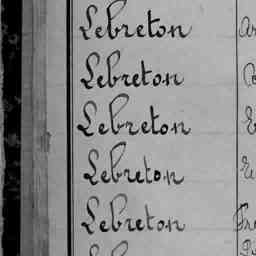 Lebreton
Lebreton
Lebreton
Lebreton
Lebreton